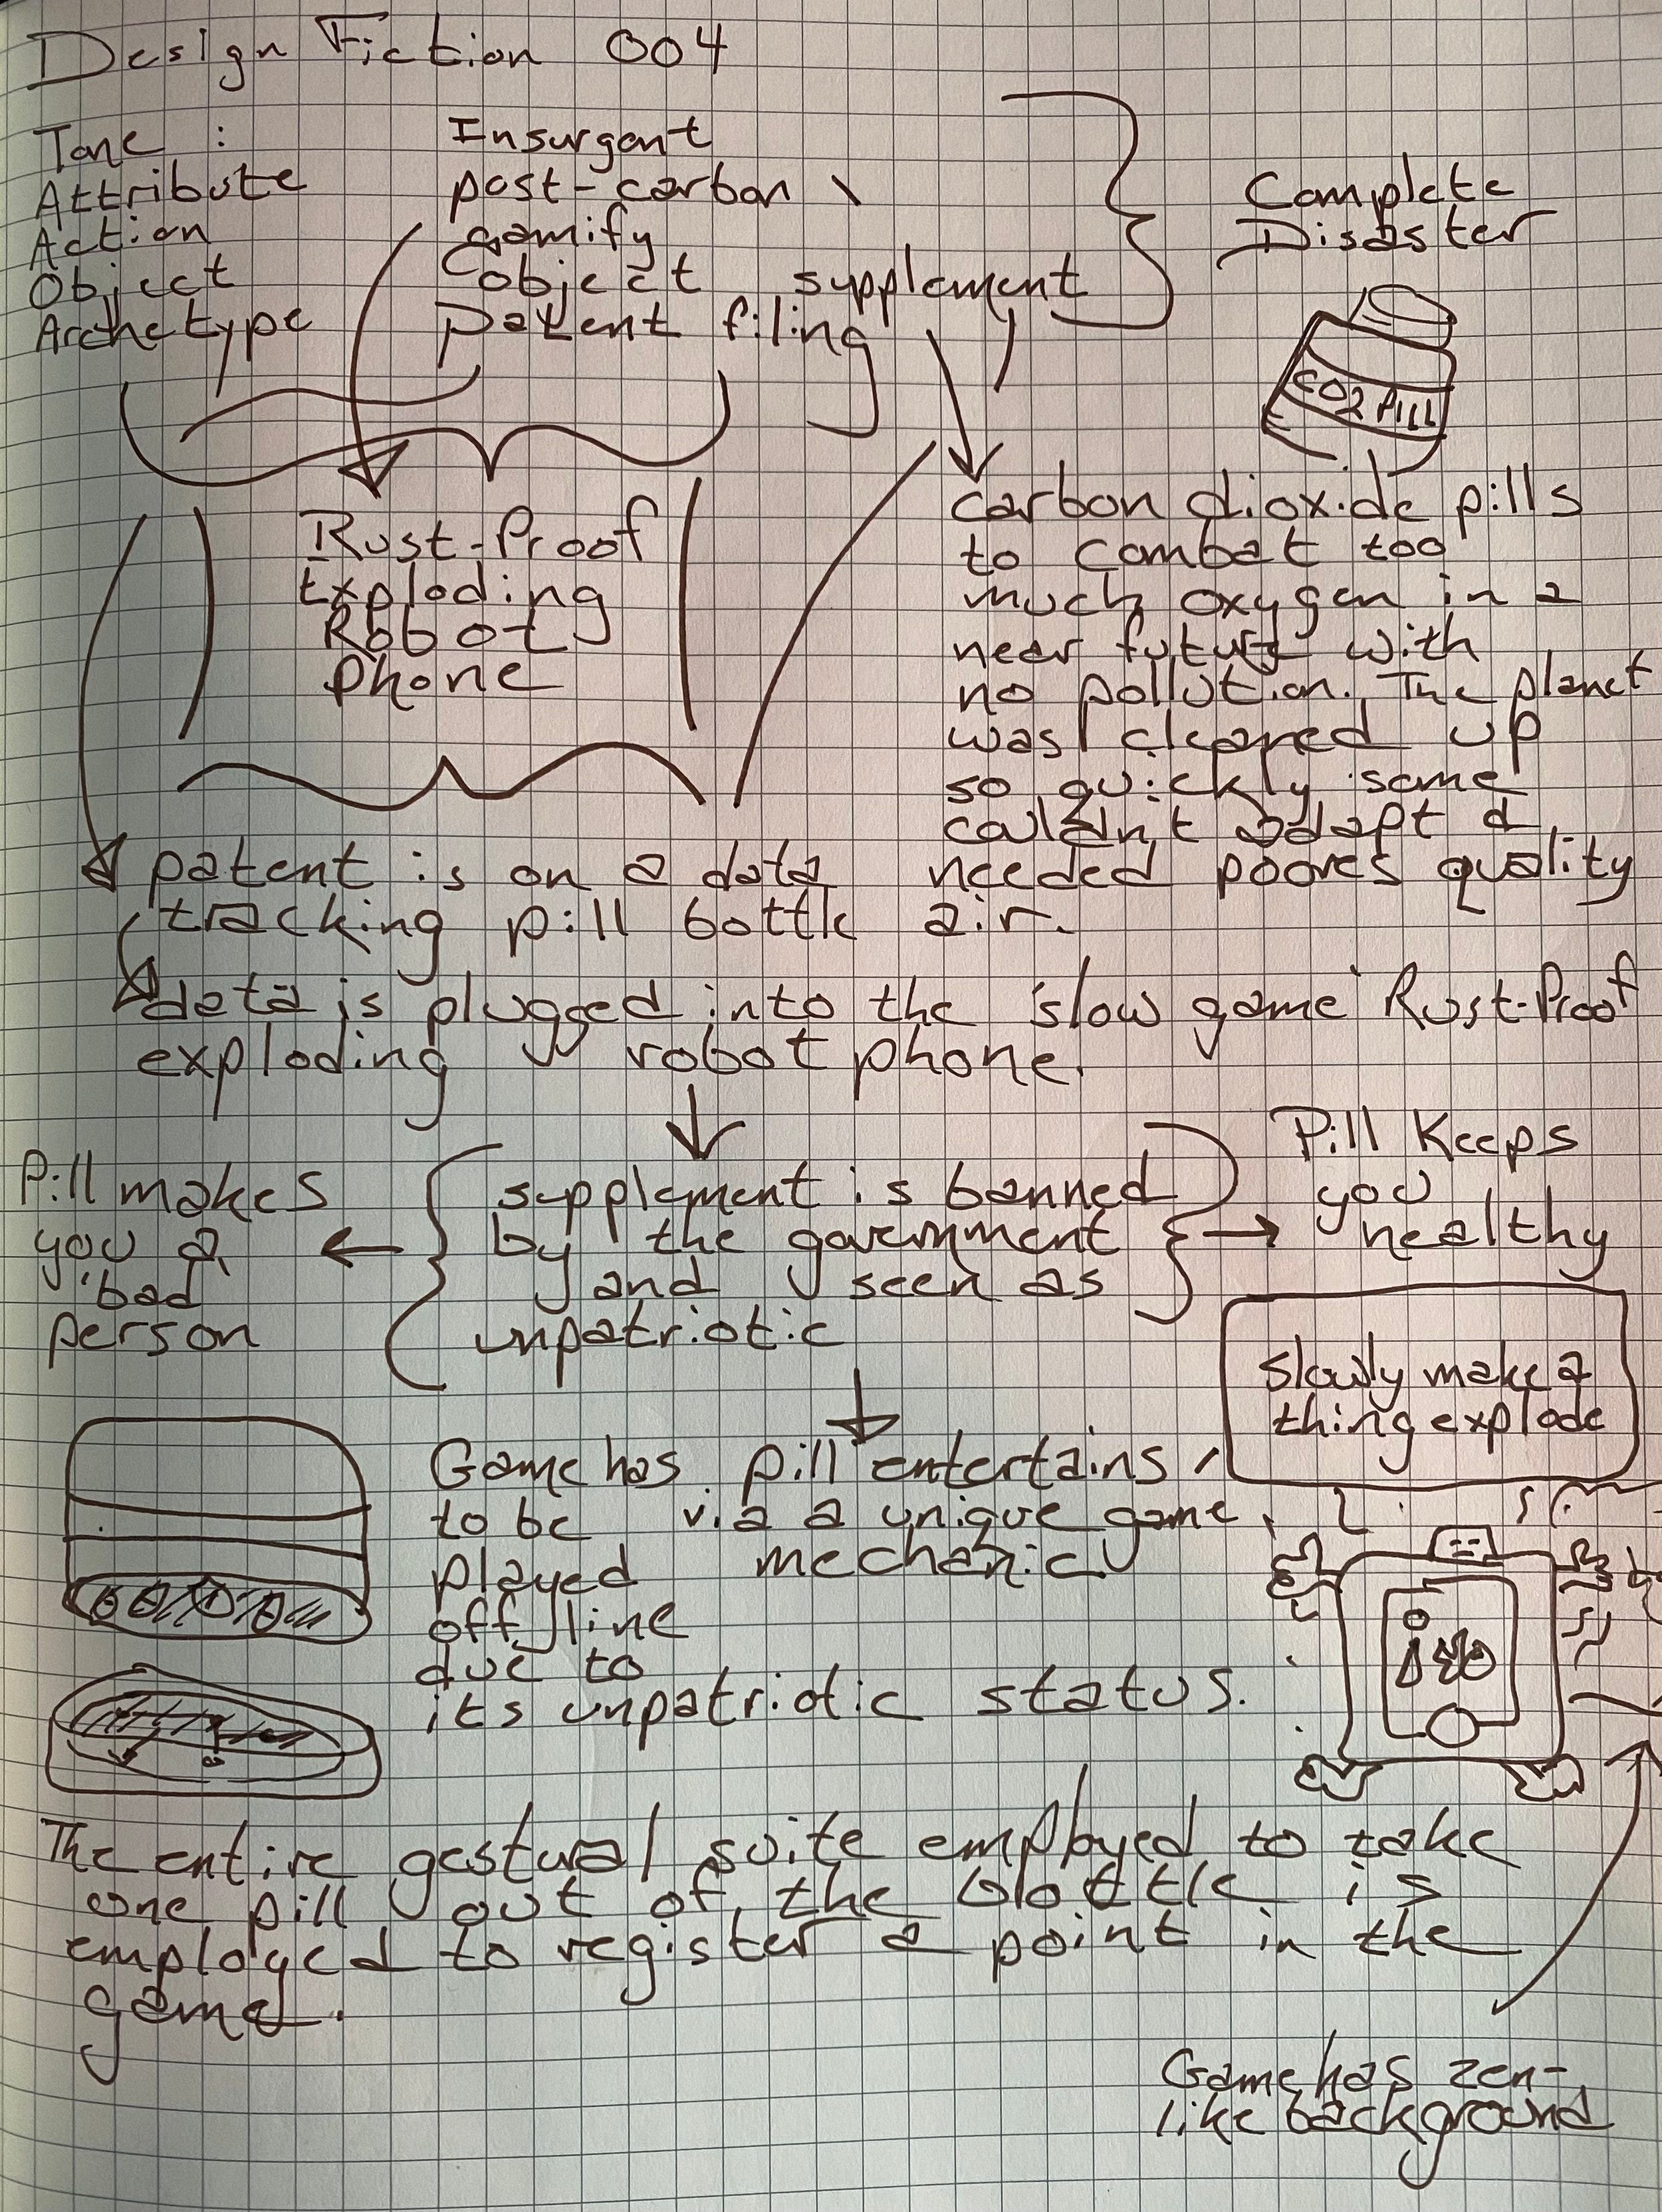 Design Fiction 004
Tone :
Attribute
Action
Object
Archetype
Insurgent
post-carbon
gamify
object supplement
patent filing
Complete
Disaster
CO2 PILL
Rust-Proof
Exploding
Robot
phone
carbon dioxide pills
to combat too
much oxygen in a
near future with
no pollution. The planet
was cleaned up
so quickly some
couldn't adapt &
needed poores quality
air.
patent is on a data
tracking pill bottle
data is plugged into the 'slow game' Rust-Proof
exploding robot phone.
Pill makes
you a
'bad
person
supplement is banned
by the government
and seen as
unpatriotic
Pill Keeps
you
healthy
slowly make a
thing explode
pill entertains
via a unique game
mechanic
Game has
to be
played
offline
due to
its unpatriotic status.
The entire gestural suite employed to take
one pill out of the blottle is
employed to register a point in the
game.
Game has zen-
like background